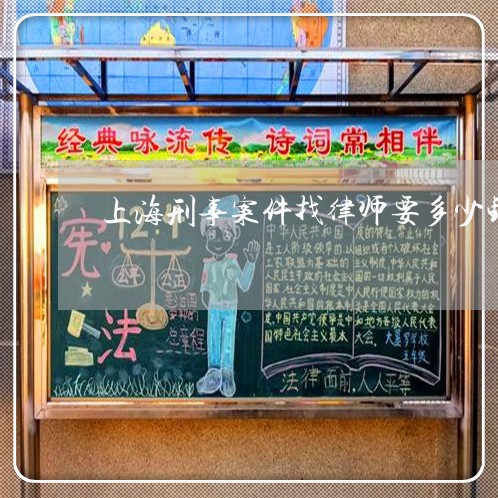 经典咏流传 诗词常相伴
上海刑事案件找律师要多少
宪法
12·4
公平
公正
总章程
中华人民共和国
是工人阶级领导的,以
工农联盟为基础的
人民民主专政的社会主义
国家,社会主义制度是中
华人民共和国的根本制
度,中国共产党领导是中
国特色社会主义最本
质的特征,禁止任何
组织或者个人破坏社会
主义制度,中华人民共和
国的一切权利属于人民,
人民行使国家权力的机
关是全国人民代表大会
和地方各级人民代表
大会。
五年级
法律面前,人人平等